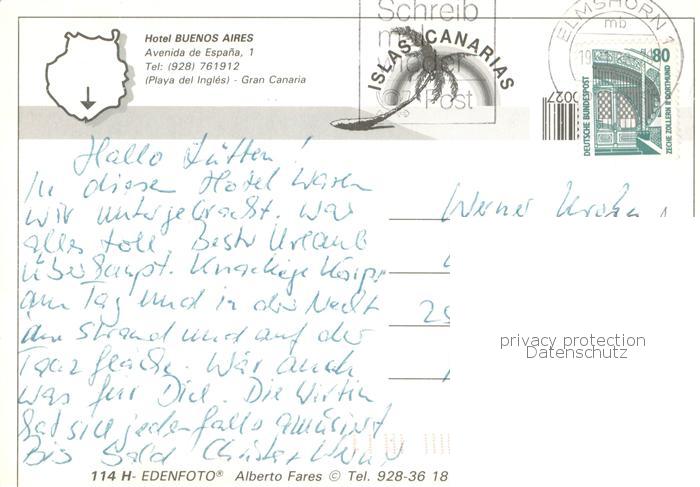 Hotel BUENOS AIRES
Avenida de España, 1
Tel: (928) 761912
(Playa del Inglés) - Gran Canaria
Schreib
mal
wieder
Post
ISLAS CANARIAS
ELMSHORN 1
mb
80
DEUTSCHE BUNDESPOST
ZECHE ZOLLERN II DORTMUND
Hallo Lütten!
In diesem Hotel waren
wir untergebracht. War
alles toll. Bester Urlaub
überhaupt. Knackige Körper
am Tag und in der Nacht
am Strand und auf der
Tanzfläche. Wär auch
was für Dich. Die Wirtin
hat sich jedenfalls amüsiert
Bis bald Christa +
Werner
privacy protection
Datenschutz
114 H- EDENFOTO® Alberto Fares © Tel. 928-36 18